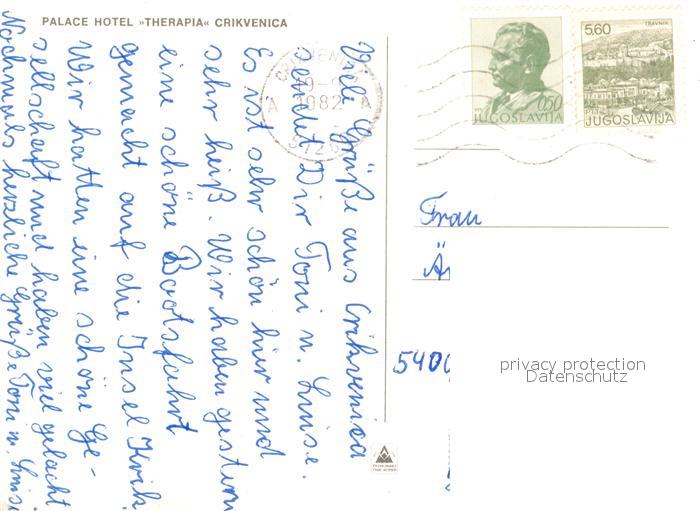 PALACE HOTEL »THERAPIA« CRIKVENICA
Viele Grüße aus Crikvenica
sendet Dir Toni u. Luise.
Es ist sehr schön hier und
sehr heiß. Wir haben gestern
eine schöne Bootsfahrt
gemacht auf die Insel Krk.
Wir hatten eine schöne Ge-
sellschaft und haben viel gelacht
Nochmals herzliche Grüße Toni u. Luise
CRIKVENICA
1982
A A
0,50
JUGOSLAVIJA
5,60
TRAVNIK
JUGOSLAVIJA
Frau
540
privacy protection
Datenschutz